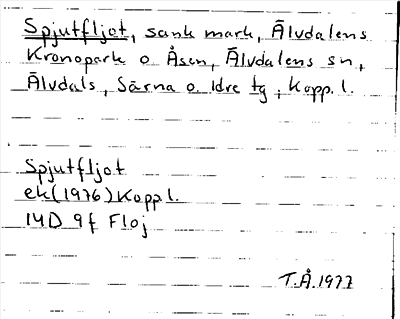 Spjutfljot, sank mark, Älvdalens
Kronopark o Åsen, Älvdalens sn,
Älvdals, Särna o. Idre tg, Kopp. l.
Spjutfljot
ek(1976) Kopp l.
14D 9f Floj
T.Å.1977